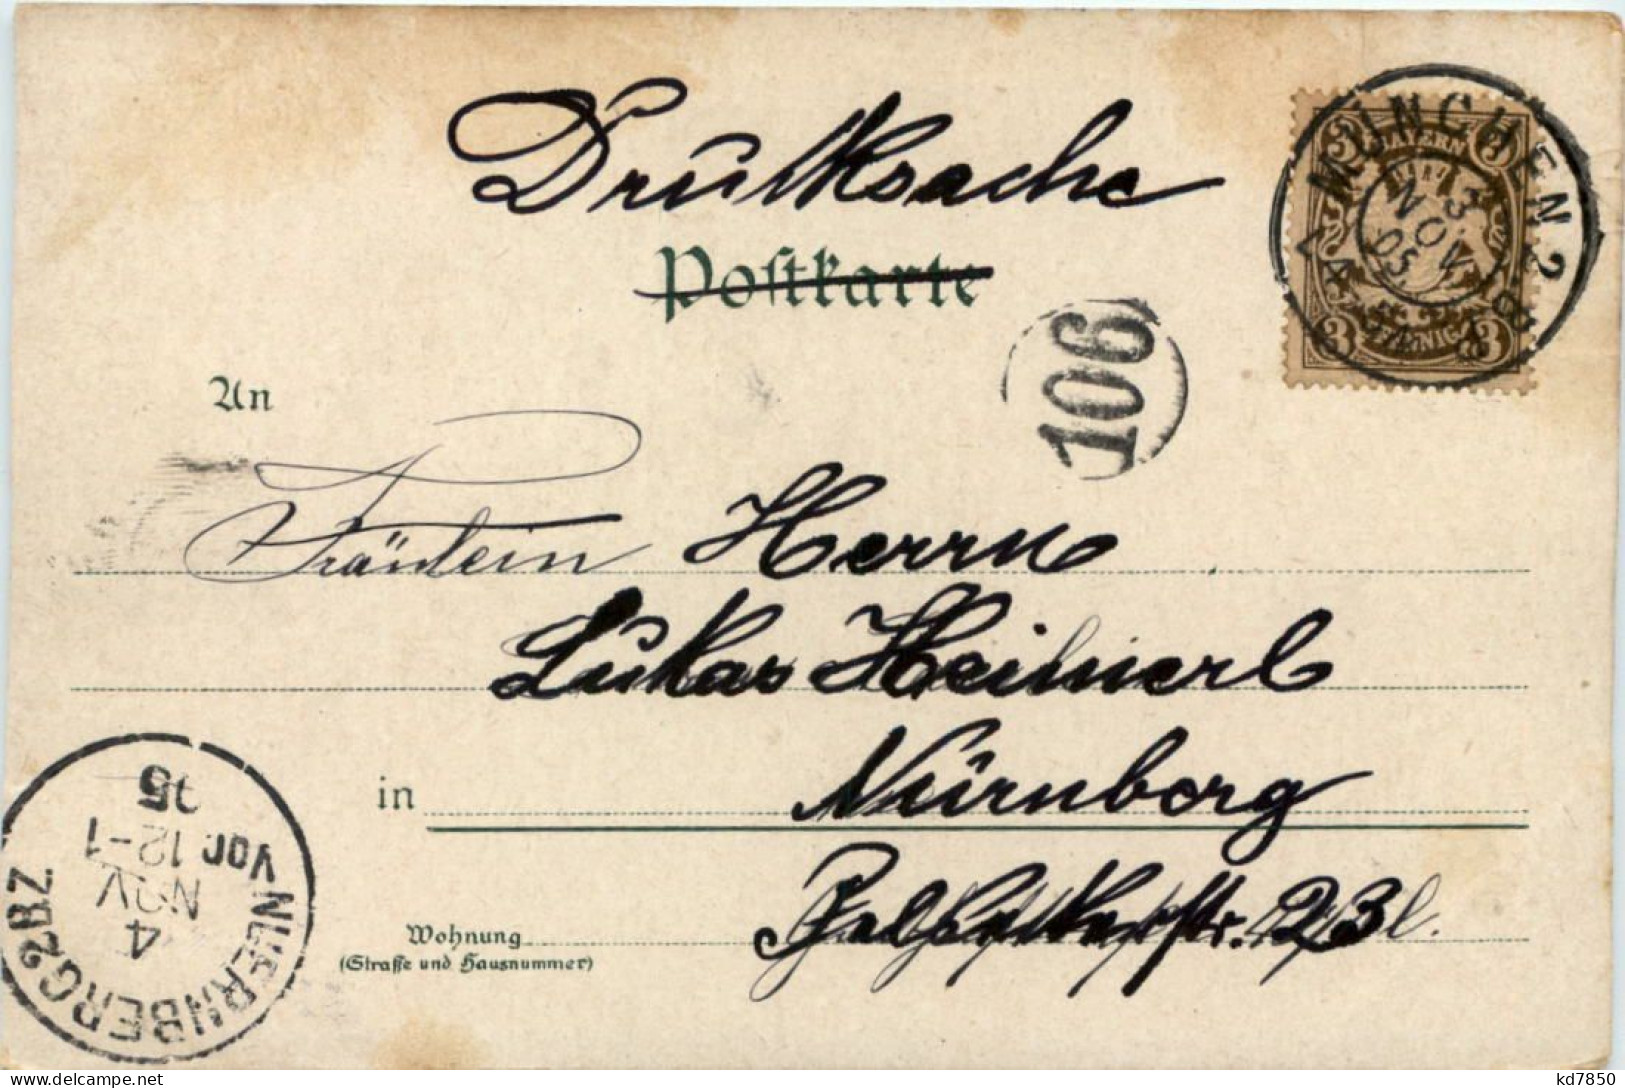 Drucksache
Postkarte
MÜNCHEN 2 B.Z.
3 NOV 05
BAYERN
3 3
3 PFENNIG 3
106
An
Fräulein Herrn
Lukas Heimerl
in Nürnberg
Wohnung str. 23
(Straße und Hausnummer)
NUERNBERG 2 BZ.
4 NOV
Vor. 12-1
05
kd7850